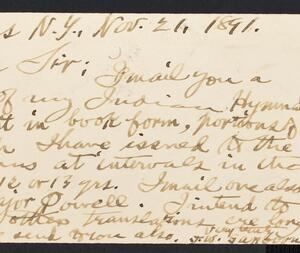 s N.Y., Nov. 21, 1891.
Sir; I mail you a
of my Indian Hymnal
t in book form, portions of
h I have issued to the
ns at intervals in the
12 or 13 yrs. I mail one also
ajor Powell. I intend to
other translations ere long
send to you also. Very truly
J. W. Sanborn